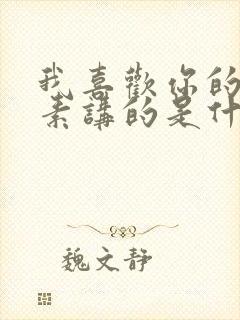 我喜歡你的
素講的是什
魏文静